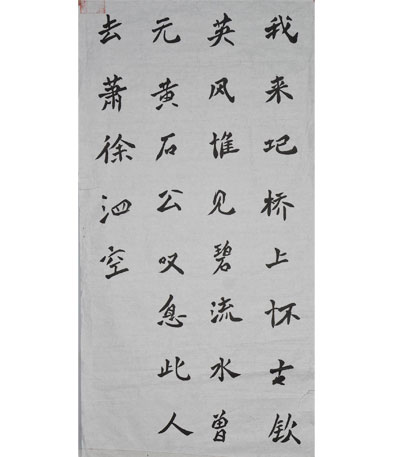 我来圯桥上怀古钦
英风惟见碧流水曾
无黄石公叹息此人
去萧徐泗空